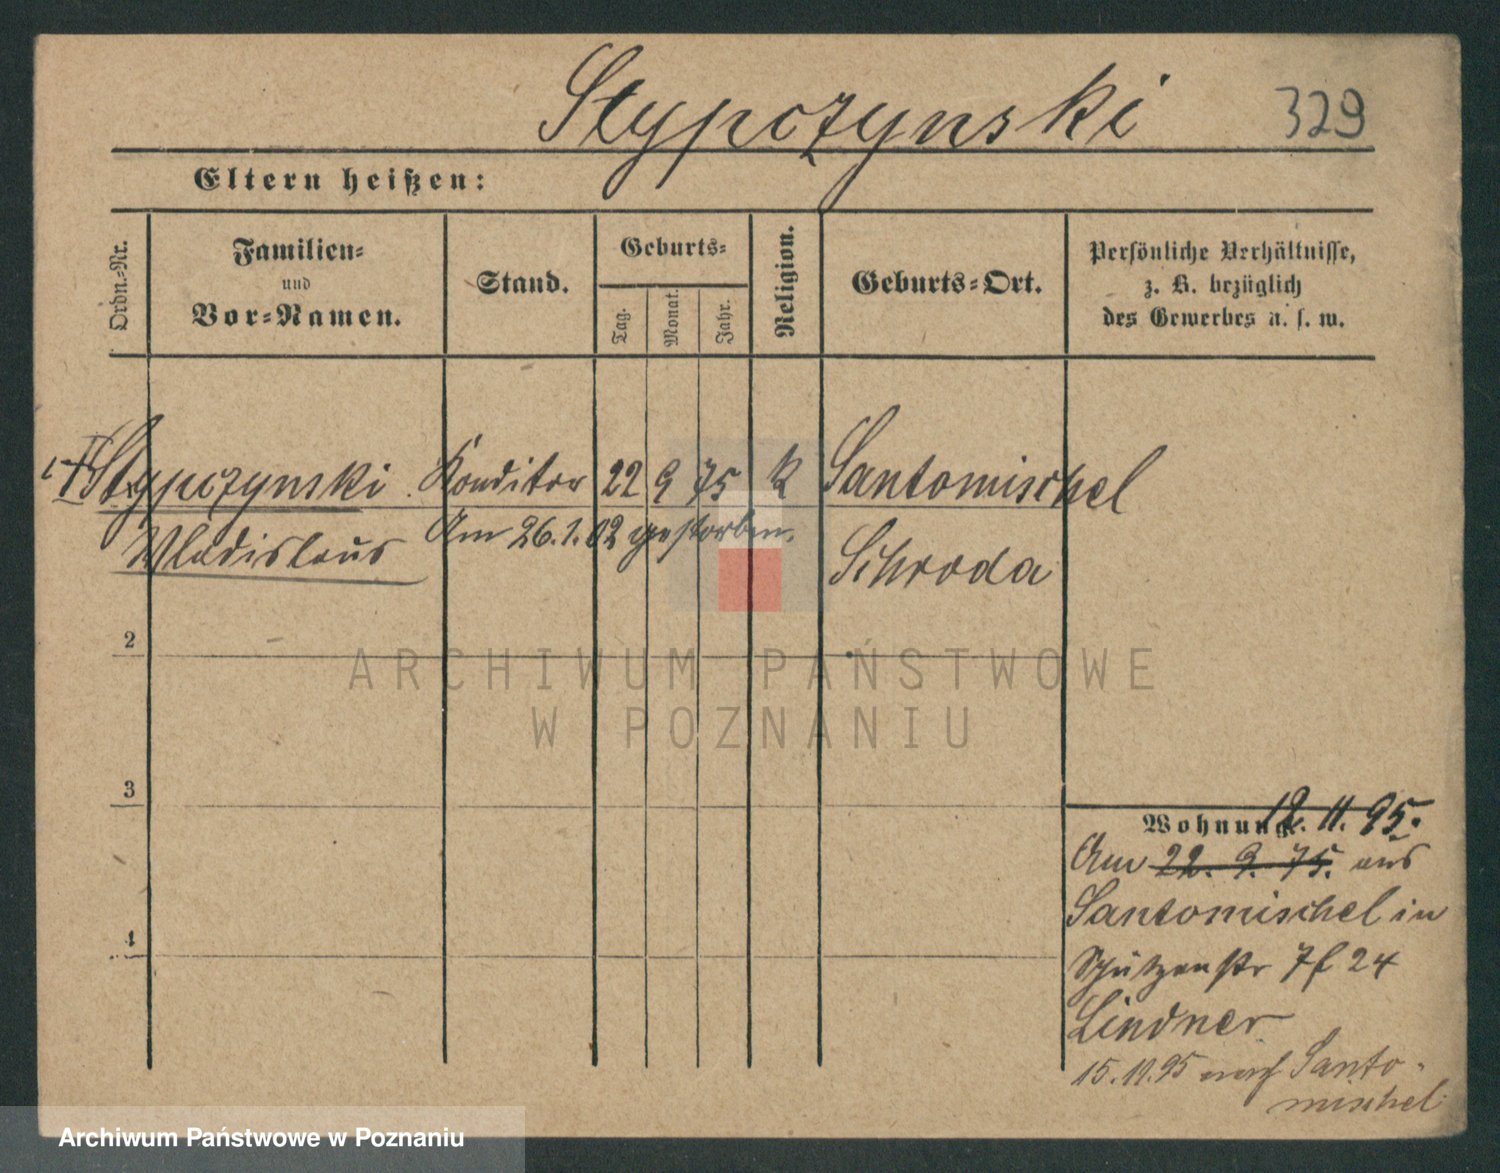 Stypczynski 329
Eltern heißen:
Ordn.-Nr.
Familien-
und
Vor-Namen.
Stand.
Geburts-
Tag. Monat. Jahr.
Religion.
Geburts-Ort.
Persönliche Verhältnisse,
z. B. bezüglich
des Gewerbes u. s. w.
Stypczynski Konditor 22 9 75 k Santomischel
Am 26.1.02 gestorben.
Wladislaus Schroda
2
3
4
12. 11. 95.
Wohnung
Am 22. 9. 75. aus
Santomischel in
Schützenstr 7 24
Lindner
15.11.95 nach Santo-
mischel
ARCHIWUM PAŃSTWOWE
W POZNANIU
Archiwum Państwowe w Poznaniu